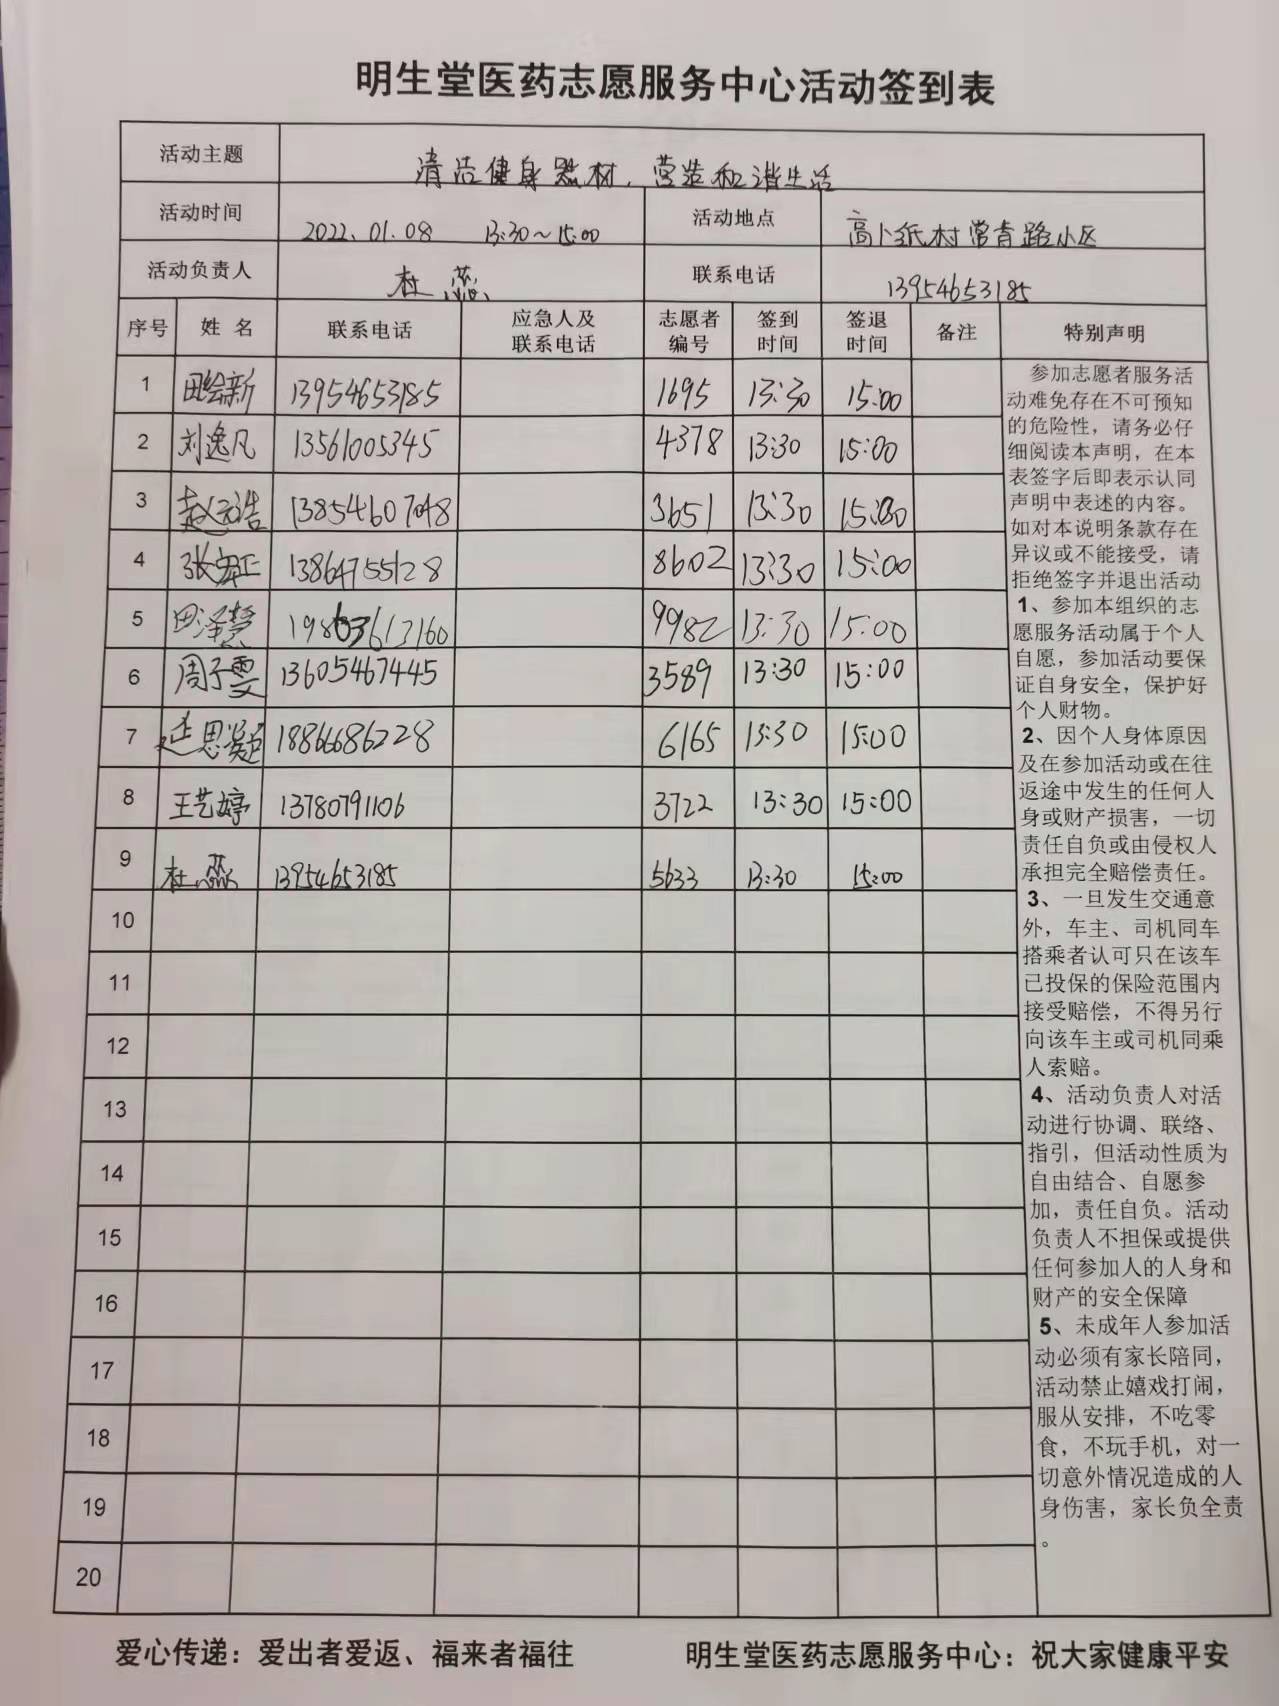 明生堂医药志愿服务中心活动签到表
活动主题 清洁健身器材，营造和谐生活
活动时间 2022.01.08 13:30~15:00 活动地点 高卜纸村常青路小区
活动负责人 杜蕊 联系电话 13954653185
序号 姓名 联系电话 应急人及联系电话 志愿者编号 签到时间 签退时间 备注 特别声明
1 田绘新 13954653185 1695 13:30 15:00
2 刘逸凡 13561005345 4378 13:30 15:00
3 赵云浩 13854607048 3651 13:30 15:00
4 张宇虹 13864755128 8602 13:30 15:00
5 田泽慧 19863613160 9982 13:30 15:00
6 周子雯 13605467445 3589 13:30 15:00
7 思 18866686228 6165 13:30 15:00
8 王艺婷 13780791106 3722 13:30 15:00
9 杜蕊 13954653185 5633 13:30 15:00
10
11
12
13
14
15
16
17
18
19
20
参加志愿者服务活
动难免存在不可预知
的危险性，请务必仔
细阅读本声明，在本
表签字后即表示认同
声明中表述的内容。
如对本说明条款存在
异议或不能接受，请
拒绝签字并退出活动
1、参加本组织的志
愿服务活动属于个人
自愿，参加活动要保
证自身安全，保护好
个人财物。
2、因个人身体原因
及在参加活动或在往
返途中发生的任何人
身或财产损害，一切
责任自负或由侵权人
承担完全赔偿责任。
3、一旦发生交通意
外，车主、司机同车
搭乘者认可只在该车
已投保的保险范围内
接受赔偿，不得另行
向该车主或司机同乘
人索赔。
4、活动负责人对活
动进行协调、联络、
指引，但活动性质为
自由结合、自愿参
加，责任自负。活动
负责人不担保或提供
任何参加人的人身和
财产的安全保障
5、未成年人参加活
动必须有家长陪同，
活动禁止嬉戏打闹，
服从安排，不吃零
食，不玩手机，对一
切意外情况造成的人
身伤害，家长负全责
。
爱心传递：爱出者爱返、福来者福往 明生堂医药志愿服务中心：祝大家健康平安